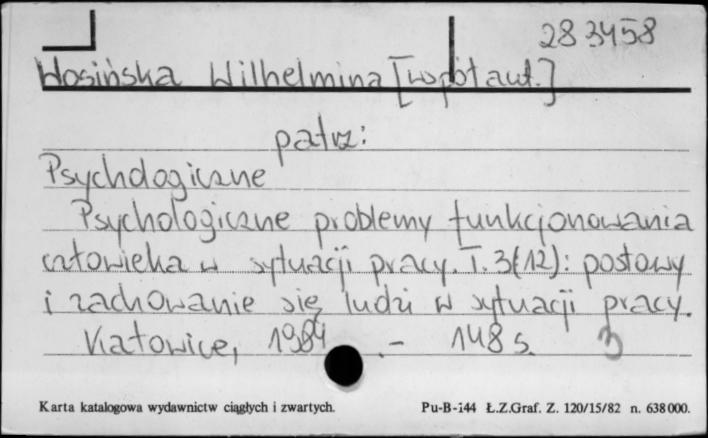 283458
Wosińska Wilhelmina [współaut.]
patrz:
Psychologiczne
Psychologiczne problemy funkcjonowania
człowieka w sytuacji pracy. T. 3(12): postawy
i zachowanie się ludzi w sytuacji pracy.
Katowice, 1984 .- 148 s. 3
Karta katalogowa wydawnictw ciągłych i zwartych. Pu-B-144 Ł.Z.Graf. Z. 120/15/82 n. 638000.